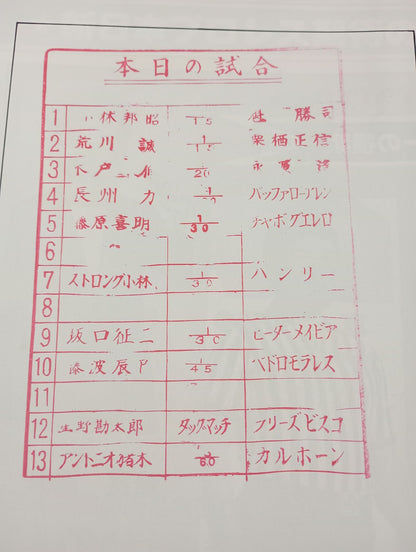 本日の試合
1 小林邦昭 1/15 勝司
2 荒川 誠 1/15 栗栖正信
3 木戸 1/20 永源
4 長州 力 1/20 バッファローアレン
5 藤原喜明 1/30 チャボゲレロ
6
7 ストロング小林 1/30 ハンリー
8
9 坂口征二 1/30 ピーターメイビア
10 藤波辰 1/45 ペドロモラレス
11
12 上野勘太郎 タッグマッチ フリーズビスコ
13 アントニオ猪木 1/60 カルホーン